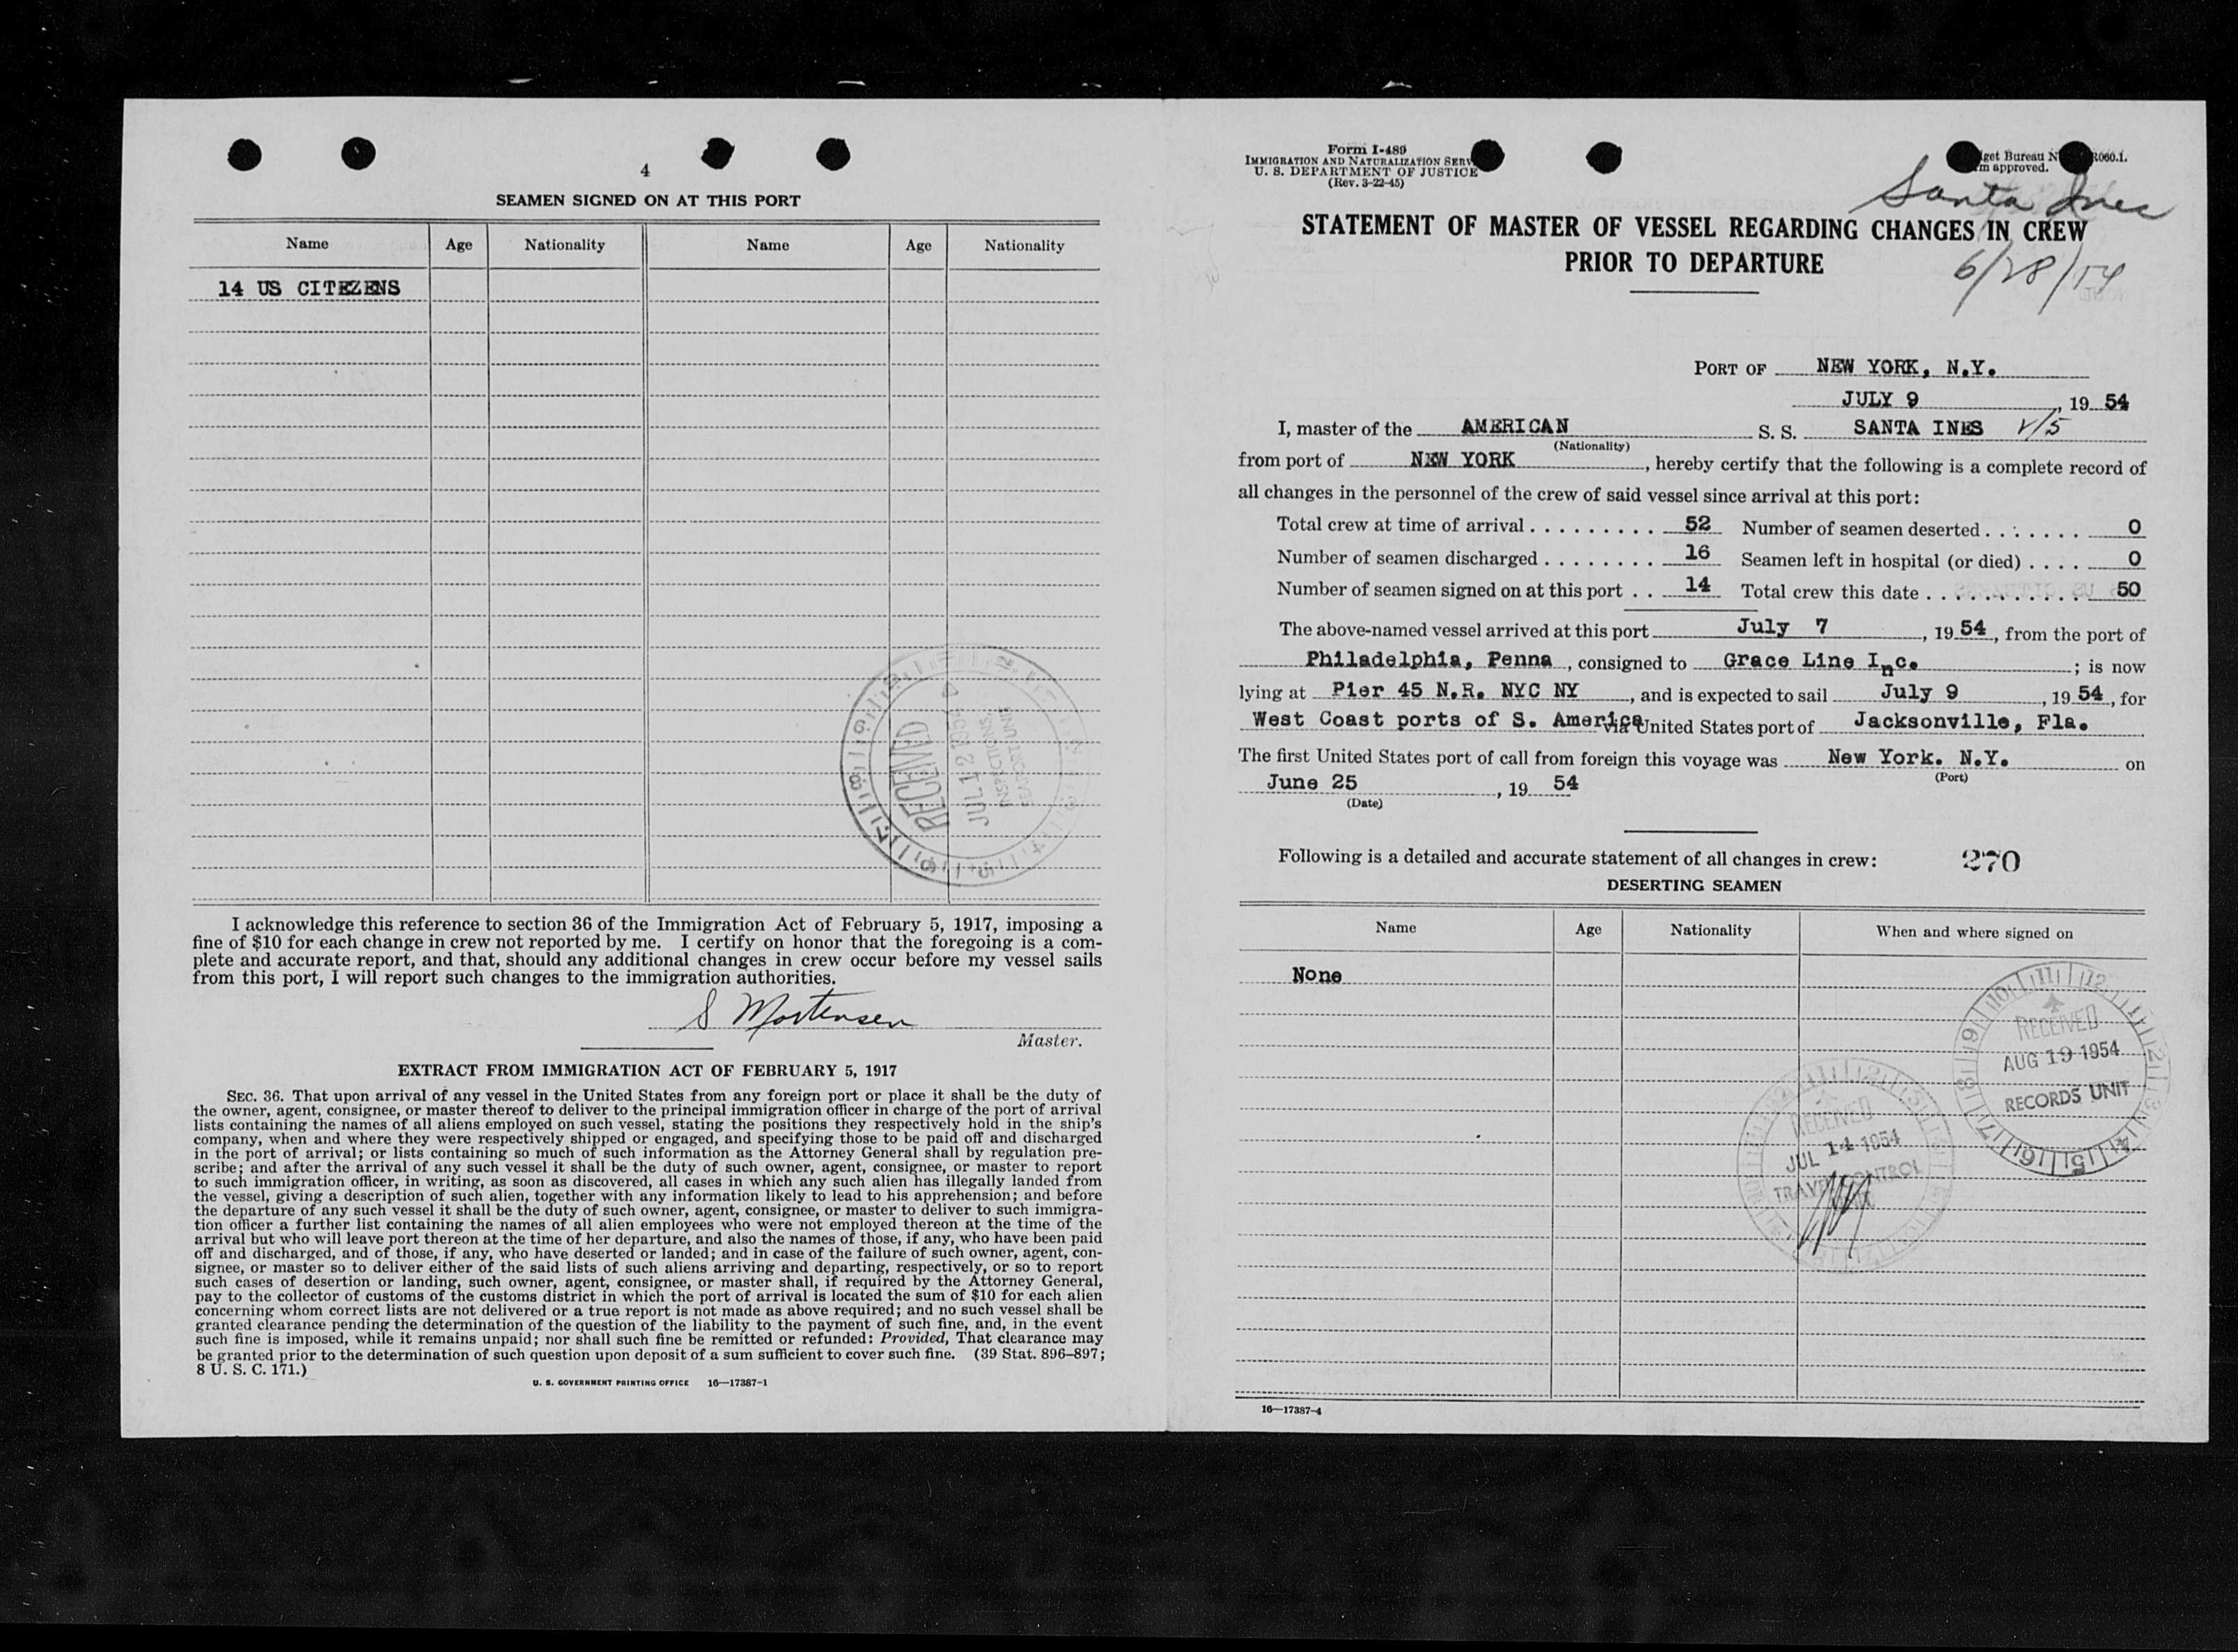 4
SEAMEN SIGNED ON AT THIS PORT
Name Age Nationality Name Age Nationality
14 US CITEZENS
RECEIVED
JUL 12 1954
INSPECTIONS
SEAPORT UNIT
I acknowledge this reference to section 36 of the Immigration Act of February 5, 1917, imposing a
fine of $10 for each change in crew not reported by me. I certify on honor that the foregoing is a com-
plete and accurate report, and that, should any additional changes in crew occur before my vessel sails
from this port, I will report such changes to the immigration authorities.
S Mortensen
Master.
EXTRACT FROM IMMIGRATION ACT OF FEBRUARY 5, 1917
SEC. 36. That upon arrival of any vessel in the United States from any foreign port or place it shall be the duty of
the owner, agent, consignee, or master thereof to deliver to the principal immigration officer in charge of the port of arrival
lists containing the names of all aliens employed on such vessel, stating the positions they respectively hold in the ship's
company, when and where they were respectively shipped or engaged, and specifying those to be paid off and discharged
in the port of arrival; or lists containing so much of such information as the Attorney General shall by regulation pre-
scribe; and after the arrival of any such vessel it shall be the duty of such owner, agent, consignee, or master to report
to such immigration officer, in writing, as soon as discovered, all cases in which any such alien has illegally landed from
the vessel, giving a description of such alien, together with any information likely to lead to his apprehension; and before
the departure of any such vessel it shall be the duty of such owner, agent, consignee, or master to deliver to such immigra-
tion officer a further list containing the names of all alien employees who were not employed thereon at the time of the
arrival but who will leave port thereon at the time of her departure, and also the names of those, if any, who have been paid
off and discharged, and of those, if any, who have deserted or landed; and in case of the failure of such owner, agent, con-
signee, or master so to deliver either of the said lists of such aliens arriving and departing, respectively, or so to report
such cases of desertion or landing, such owner, agent, consignee, or master shall, if required by the Attorney General,
pay to the collector of customs of the customs district in which the port of arrival is located the sum of $10 for each alien
concerning whom correct lists are not delivered or a true report is not made as above required; and no such vessel shall be
granted clearance pending the determination of the question of the liability to the payment of such fine, and, in the event
such fine is imposed, while it remains unpaid; nor shall such fine be remitted or refunded: Provided, That clearance may
be granted prior to the determination of such question upon deposit of a sum sufficient to cover such fine. (39 Stat. 896–897;
8 U. S. C. 171.)
U. S. GOVERNMENT PRINTING OFFICE 16—17387-1
Form I-489
IMMIGRATION AND NATURALIZATION SERV
U. S. DEPARTMENT OF JUSTICE
(Rev. 3-22-45)
get Bureau N R060.1.
m approved.
Santa Ines
STATEMENT OF MASTER OF VESSEL REGARDING CHANGES IN CREW
PRIOR TO DEPARTURE
6/28/54
PORT OF NEW YORK, N.Y.
JULY 9, 19 54
I, master of the AMERICAN S. S. SANTA INES V/5
(Nationality)
from port of NEW YORK, hereby certify that the following is a complete record of
all changes in the personnel of the crew of said vessel since arrival at this port:
Total crew at time of arrival . . . . . . . . . 52 Number of seamen deserted . . . . . . . 0
Number of seamen discharged . . . . . . . . 16 Seamen left in hospital (or died) . . . . 0
Number of seamen signed on at this port . . 14 Total crew this date . . . . . . . . . . . 50
The above-named vessel arrived at this port July 7, 19 54, from the port of
Philadelphia, Penna, consigned to Grace Line Inc.; is now
lying at Pier 45 N.R. NYC NY, and is expected to sail July 9, 19 54, for
West Coast ports of S. America via United States port of Jacksonville, Fla.
The first United States port of call from foreign this voyage was New York. N.Y. on
(Port)
June 25, 19 54
(Date)
Following is a detailed and accurate statement of all changes in crew: 270
DESERTING SEAMEN
Name Age Nationality When and where signed on
None
RECEIVED
AUG 19 1954
RECORDS UNIT
RECEIVED
JUL 14 1954
TRAVEL CONTROL
16—17387-4